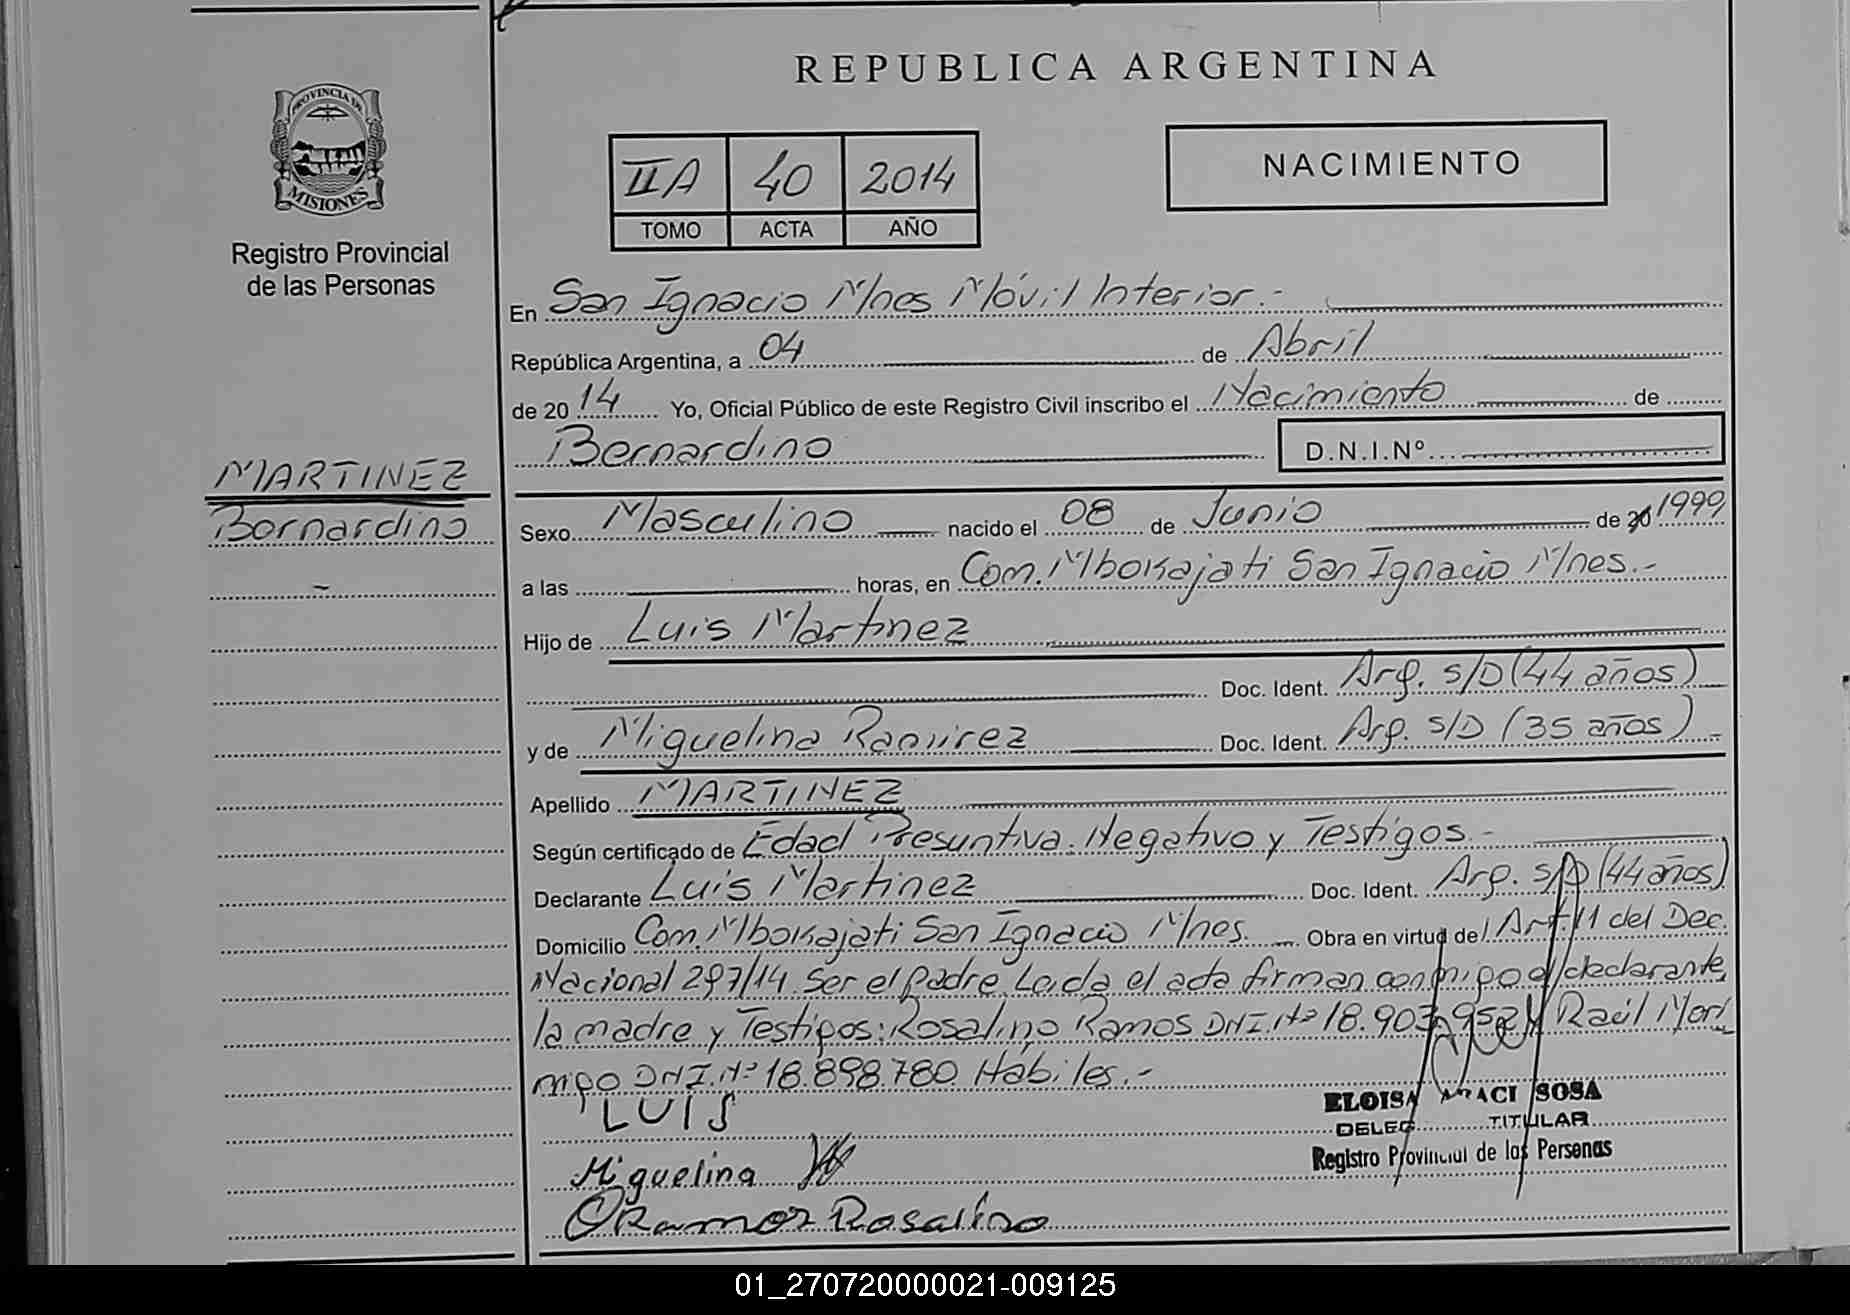 REPUBLICA ARGENTINA
PROVINCIA DE
MISIONES
Registro Provincial
de las Personas
IIA 40 2014
TOMO ACTA AÑO
NACIMIENTO
En San Ignacio Mnes Móvil Interior.-
República Argentina, a 04 de Abril
de 2014 Yo, Oficial Público de este Registro Civil inscribo el Nacimiento de
Bernardino D.N.I.Nº
MARTINEZ
Bernardino
-
Sexo Masculino nacido el 08 de Junio de 20 1999
a las horas, en Com. Mbokajati San Ignacio Mnes.-
Hijo de Luis Martinez
Doc. Ident. Arg. S/D (44 años)
y de Miguelina Ramirez Doc. Ident. Arg. S/D (35 años) -
Apellido MARTINEZ
Según certificado de Edad Presuntiva. Negativo y Testigos.-
Declarante Luis Martinez Doc. Ident. Arg. S/D (44 años)
Domicilio Com. Mbokajati San Ignacio Mnes. Obra en virtud del Art. 11 del Dec.
Nacional 297/14 Ser el padre Leida el acta firman conmigo el declarante,
la madre y Testigos: Rosalino Ramos DNI.Nº 18.903.952 y Raúl
DNI.Nº 18.898.780 Hábiles.-
LUIS
ELOISA ARACI SOSA
DELEG TITULAR
Miguelina
Registro Provincial de las Personas
Ramos Rosalino
01_270720000021-009125